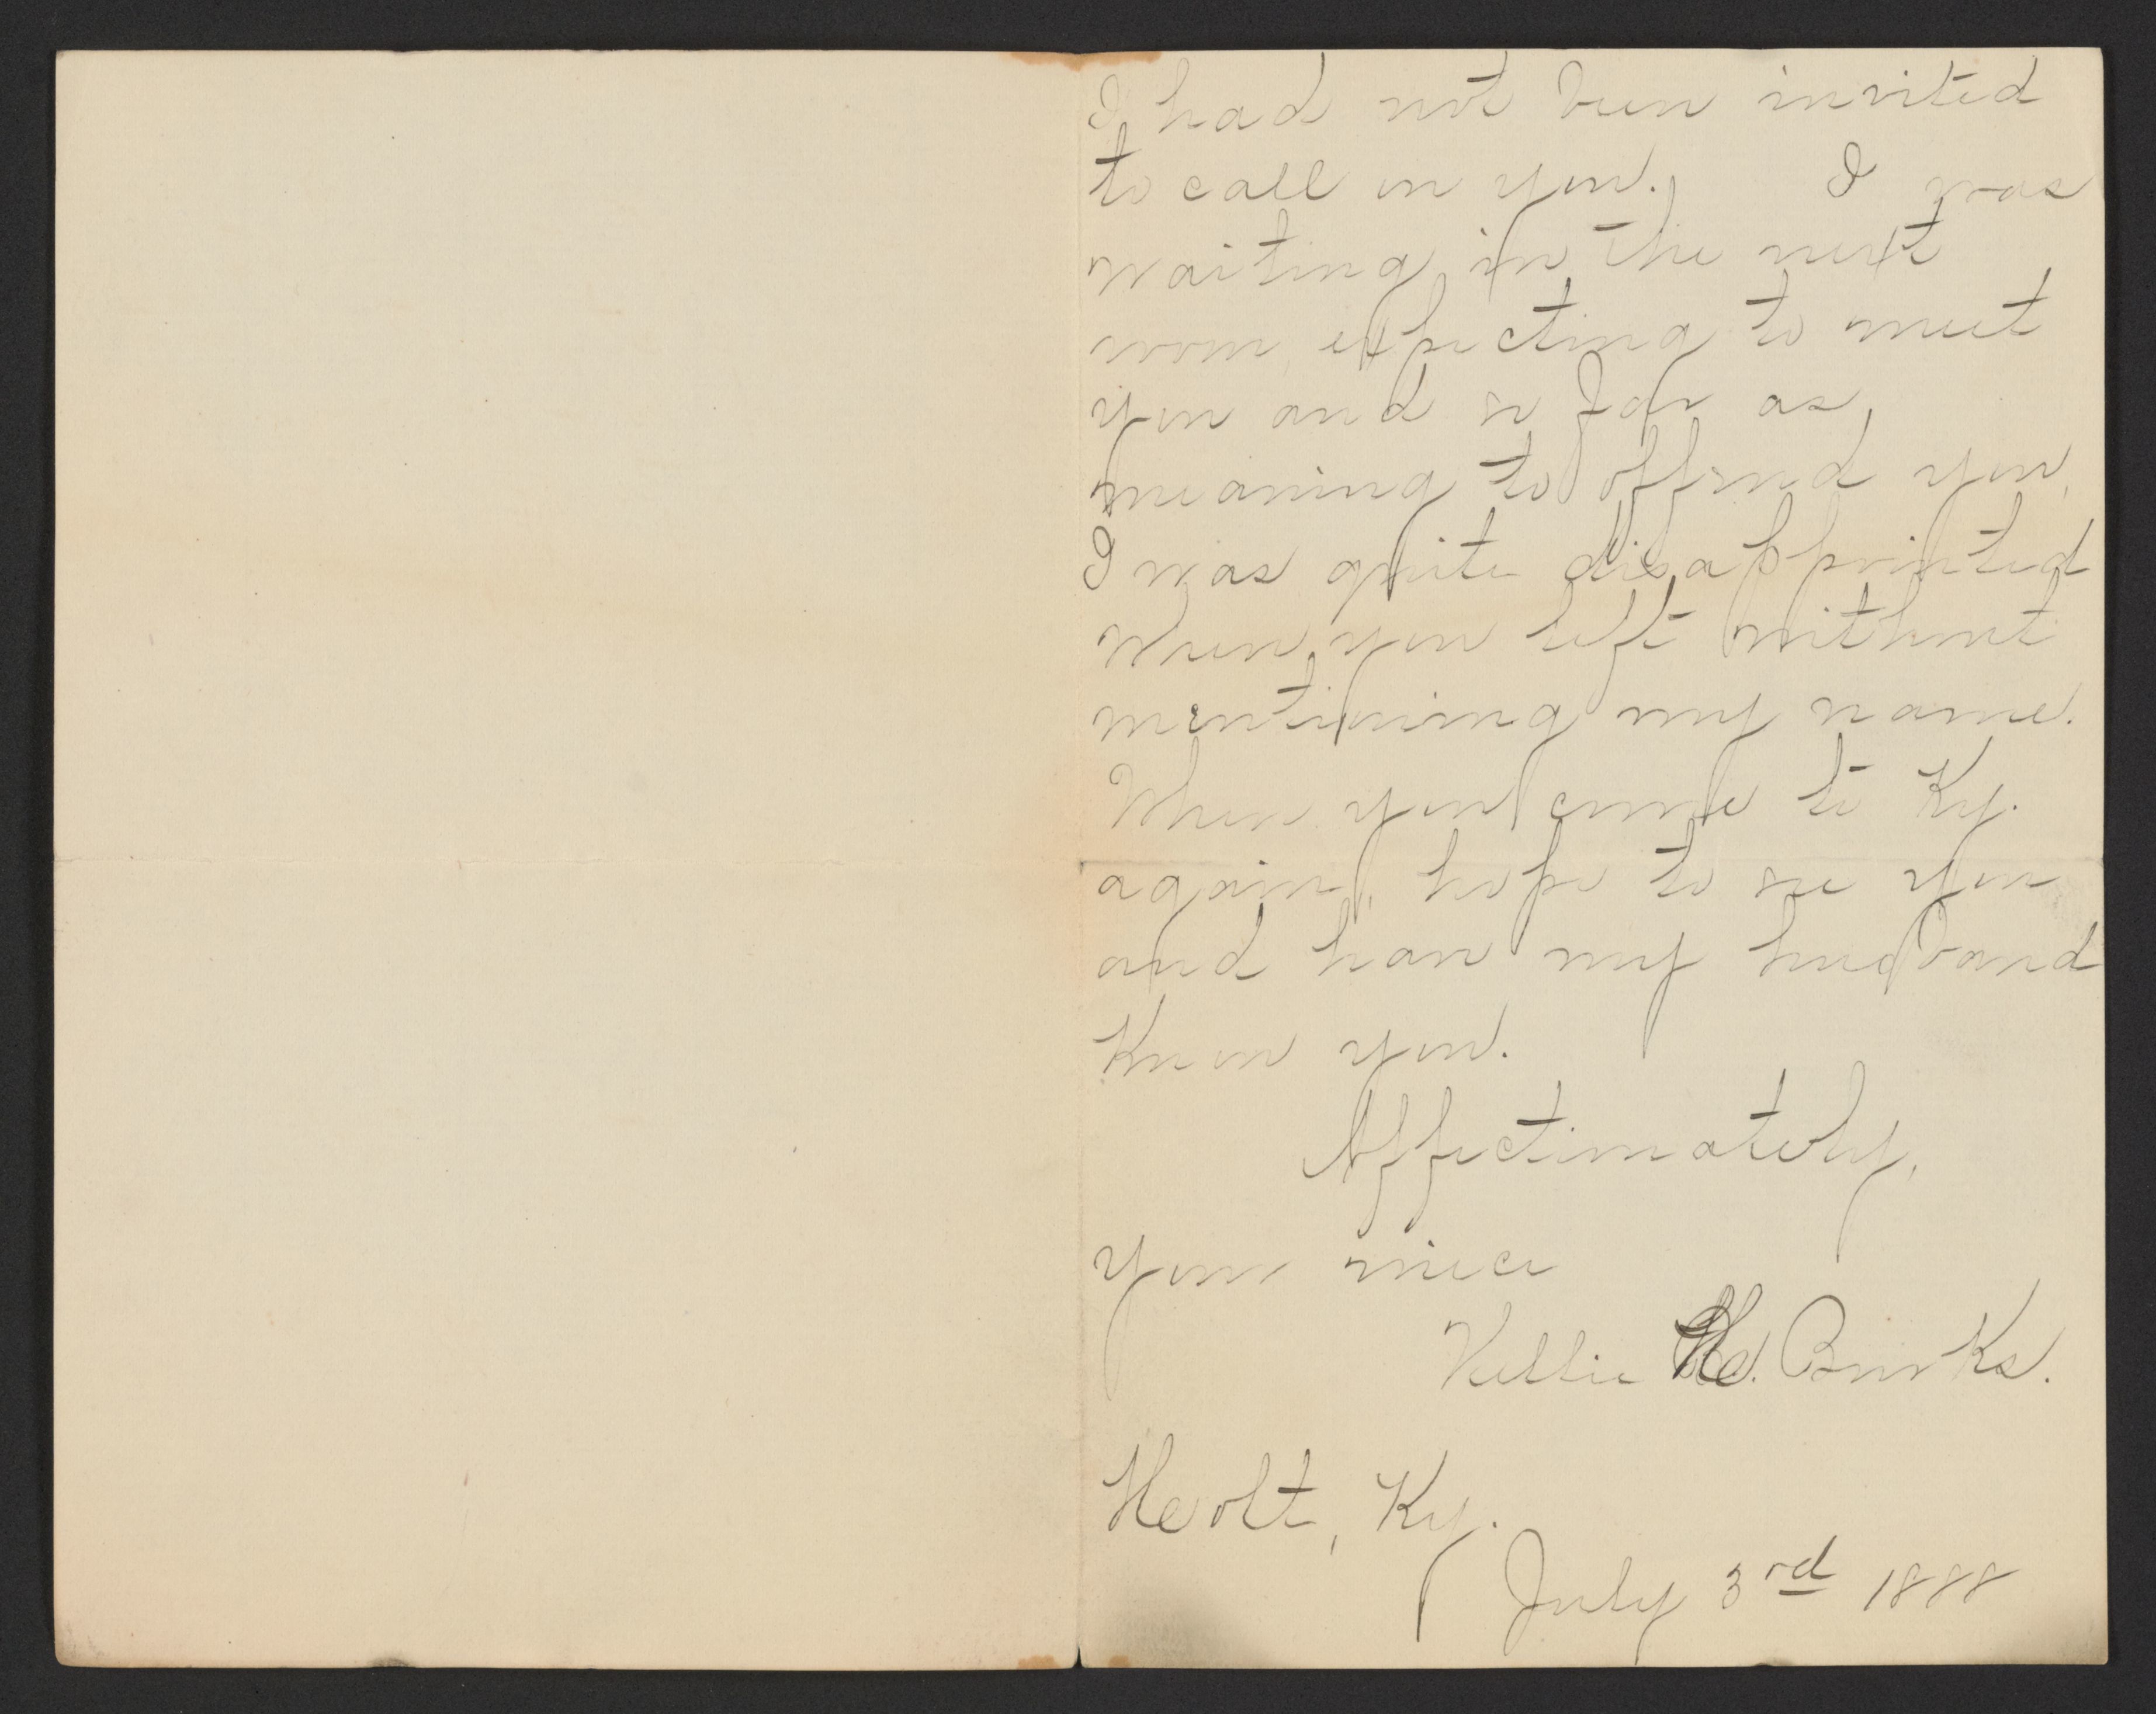 I had not been invited
to call on you. I was
waiting in the next
room, expecting to meet
you and so far as
meaning to offend you,
I was quite disappointed
when you left without
mentioning my name.
When you come to Ky.
again, hope to see you
and have my husband
know you.
Affectionately,
your niece
Nellie H. Burks.
Holt, Ky.
July 3rd 1888